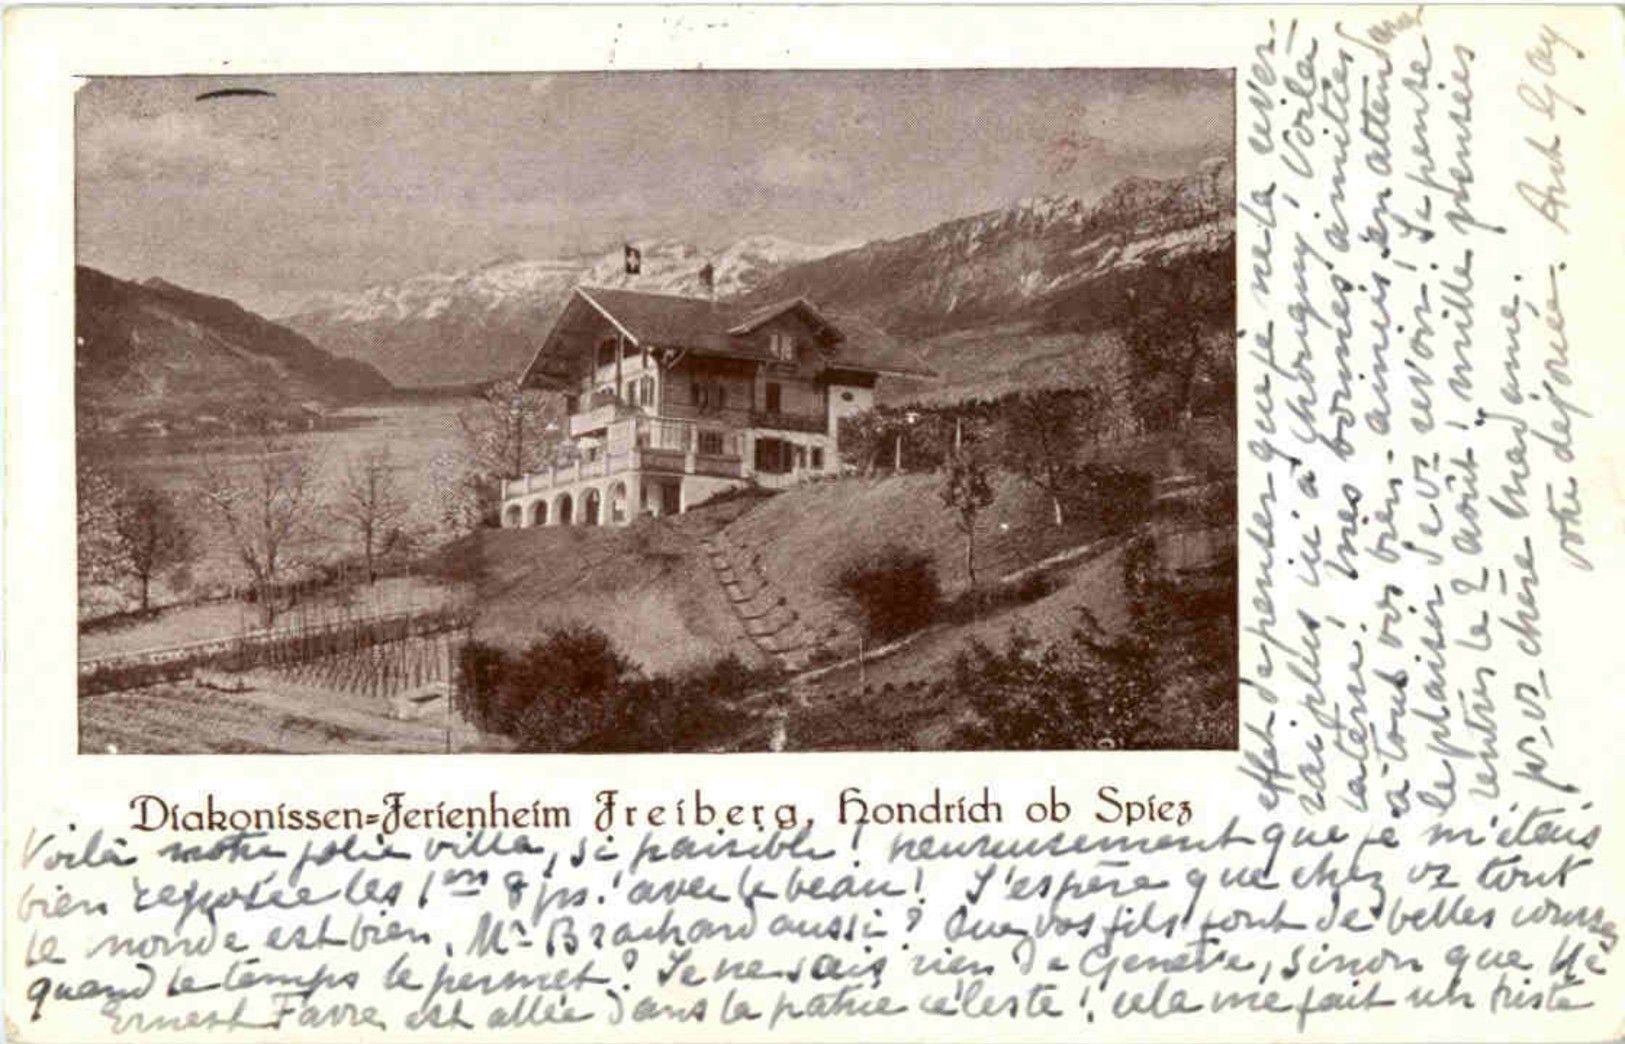 Diakonissen=Ferienheim Freiberg, Hondrich ob Spiez
Voilà notre jolie villa, si paisible! heureusement que je m'étais
bien reposée les 1ers 8 jrs. avec le beau! J'espère que chez vs tout
le monde est bien, Mr Brachard aussi? Que vos fils font de belles courses
quand le temps le permet? Je ne sais rien de Genève, sinon que
Ernest Favre est allée dans la patrie céleste! cela me fait un triste
effet de penser que je ne la rever-
rai plus ici à Voilà
la terre! Mes bonnes amitiés
à tout vos bien-aimés, en attendant
le plaisir de vs revoir! Je pense
rentrer le 2 août, mille pensées
pr vs chère Madame.
votre dévouée. Gay